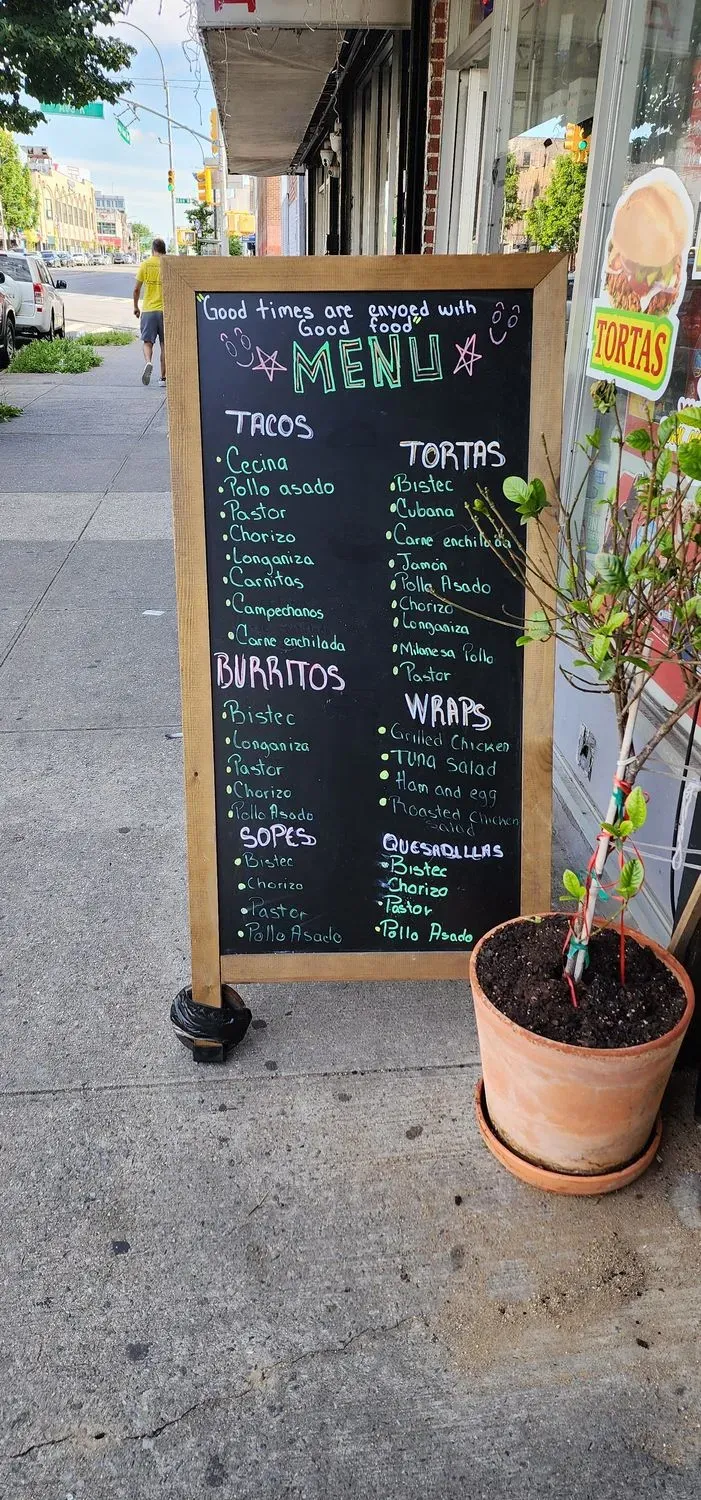 "Good times are enyoed with
Good food"
MENU
TACOS
Cecina
Pollo asado
Pastor
Chorizo
Longaniza
Carnitas
Campechanos
Carne enchilada
BURRITOS
Bistec
Longaniza
Pastor
Chorizo
Pollo Asado
SOPES
Bistec
Chorizo
Pastor
Pollo Asado
TORTAS
Bistec
Cubana
Carne enchilada
Jamón
Pollo Asado
Chorizo
Longaniza
Milanesa Pollo
Pastor
WRAPS
Grilled Chicken
Tuna Salad
Ham and egg
Roasted Chicken
Salad
QUESADILLAS
Bistec
Chorizo
Pastor
Pollo Asado
TORTAS